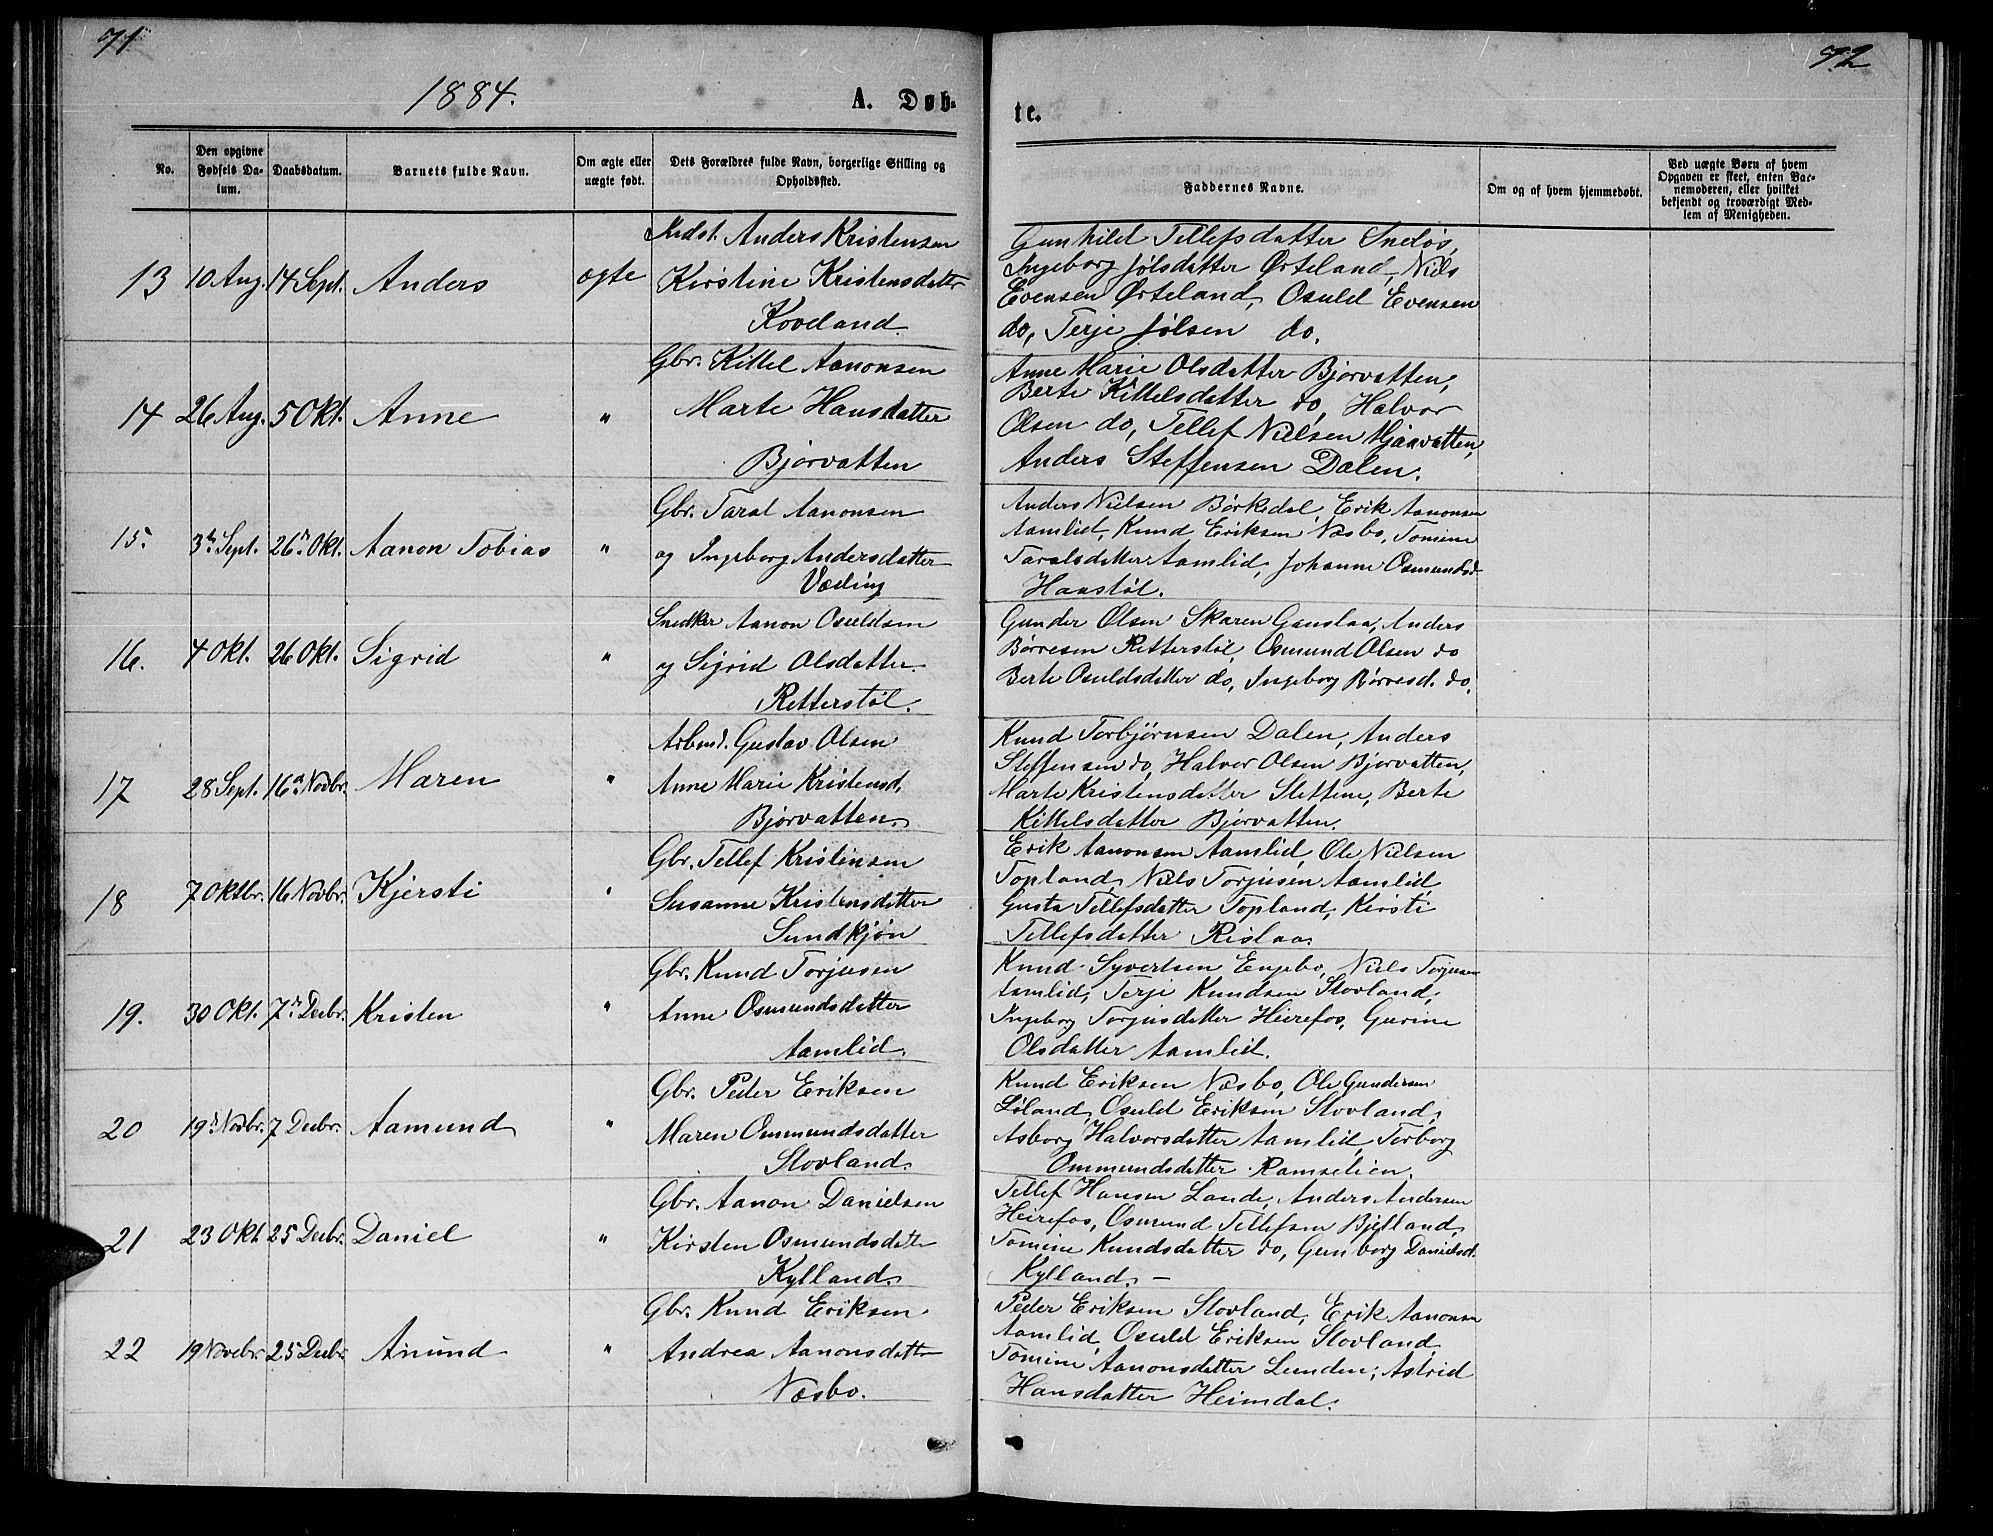 71
72
1884.
A. Døb-
te.
No.
Den opgivne Fødsels Da-tum.
Daabsdatum.
Barnets fulde Navn.
Om ægte eller uægte født.
Dets Forældres fulde Navn, borgerlige Stilling og Opholdssted.
Faddernes Navne.
Om og af hvem hjemmedøbt.
Ved uægte Børn af hvem Opgaven er skeet, enten Bar-nemoderen, eller hvilket bekjendt og troværdigt Med-lem af Menigheden.
Indst. Anders Kristensen
13 10 Aug. 14 Sept. Anders ogte Kirstine Kristensdatter
Koveland
Gunhild Tellefsdatter Snedøs,
Ingeborg Jølsdatter Ørteland, Niels
Evensen Ørteland, Osuld Evensen
do, Terje Jølsen do.
Gbr. Kittel Aanonsen
14 26 Aug. 5 Okt. Anne " Marte Hansdatter
Bjorvatten
Anne Marie Olsdatter Bjorvatten,
Berte Kittelsdatter do, Halvor
Olsen do, Tellef Nielsen Mjaavatten,
Anders Steffensen Dalen.
Gbr. Taral Aanonsen
15. 3de Sept. 26de Okt. Aanon Tobias " og Ingeborg Andersdatter
Væding
Anders Nielsen Børkedal, Erik Aanonsen
Aamlid, Knud Eriksen Næsbo, Tomine
Taralsdatter Aamlid, Johanne Osmundsd.
Haastøl.
Snedker Aanon Osuldsen
16. 4 Okt. 26 Okt. Sigrid " og Sigrid Olsdatter
Retterstøl.
Gunder Olsen Skaren Gauslaa, Anders
Børresen Retterstøl, Osmund Olsen do
Berte Osuldsdatter do, Ingeborg Børresd. do.
Arbmd. Gustav Olsen
17 28 Sept. 16de Novbr. Maren " Anne Marie Kristensd.
Bjorvatten.
Knud Torbjørnsen Dalen, Anders
Steffensen do, Halvor Olsen Bjorvatten,
Marte Kristensdatter Stettine, Berte
Kittelsdatter Bjorvatten.
Gbr. Tellef Kristensen
18 7 Oktbr. 16 Novbr. Kjersti " Susanne Kristensdatter
Sundkjøn
Erik Aanonsen Aamlid, Ole Nielsen
Topland, Niels Torjusen Aamlid
Gusta Tellefsdatter Topland, Kirsti
Tellefsdatter Rislaa
Gbr. Knud Torjusen
19. 30 Okt. 7de Decbr. Kristen " Anne Osmundsdatter
Aamlid.
Knud Syvertsen Engebo, Niels Torjusen
Aamlid, Terje Knudsen Stovland,
Ingeborg Torjusdatter Heirefos, Gurine
Olsdatter Aamlid.
Gbr. Peder Eriksen
20 19de Novbr. 7 Decbr. Aamund " Maren Ommundsdatter
Stovland.
Knud Eriksen Næsbo, Ole Gundersen
Løland, Osuld Eriksen Stovland,
Asborg Halvorsdatter Aamlid, Torborg
Ommundsdatter Ramselien.
Gbr. Aanon Danielsen
21 23 Okt 25 Decbr. Daniel " Kirsten Osmundsdatter
Kylland.
Tellef Hansen Lande, Anders Andersen
Heirefos, Osmund Tellefsen Bjelland,
Tomine Knudsdatter do, Gunborg Danielsd.
Kylland. —
Gbr. Knud Eriksen
22 19 Novbr. 25 Decbr. Anund " Andrea Aanonsdatter
Næsbo.
Peder Eriksen Stovland, Erik Aanonsen
Aamlid, Osuld Eriksen Stovland
Tomine Aanonsdatter Lunden, Astrid
Hansdatter Heimdal.